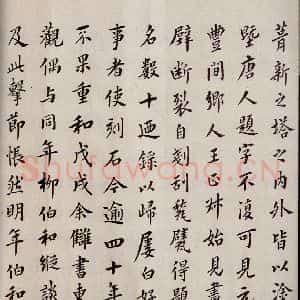 菁新之塔之內外皆以塗
暨唐人題字不復可見元
豐間鄉人王正叔始見畫
壁斷裂自剔刮甓得題
名數十迺錄以歸屢白好
事者使刻石今逾四十年
不果重和戊戌余讎書東
觀偶与同年柳伯和縱談
及此擊節悵然明年伯和
Shufawang.CN